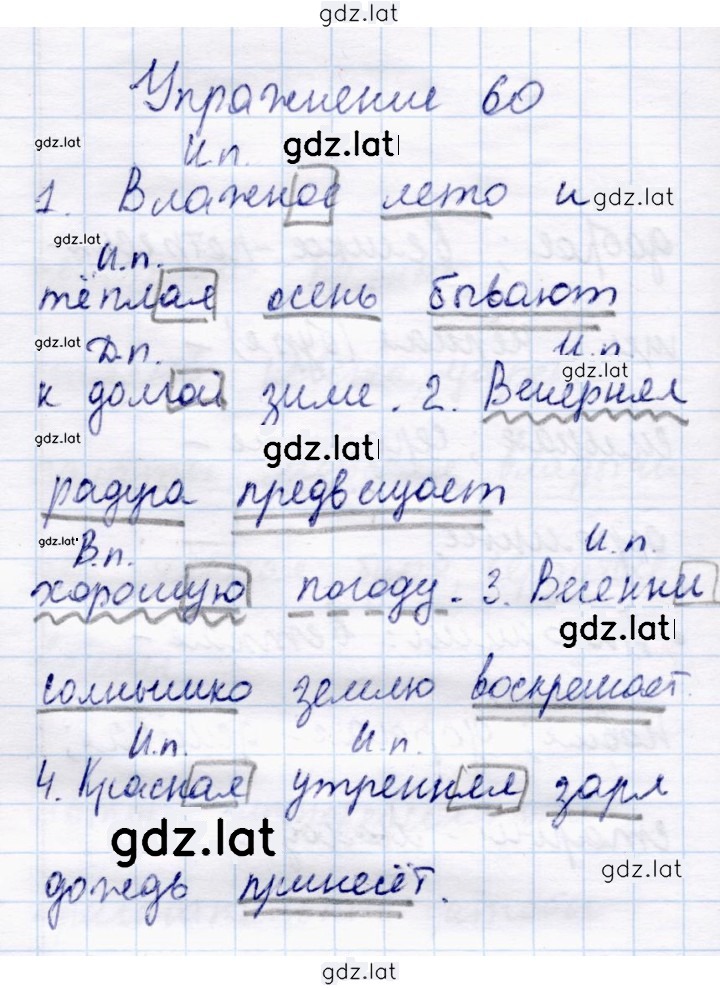 gdz.lat
Упражнение 60
gdz.lat И.п. gdz.lat
1. Влажное лето и gdz.lat
gdz.lat И.п.
тёплая осень бывают
gdz.lat Д.п. И.п.
gdz.lat
к долгой зиме. 2. Вечерняя
gdz.lat gdz.lat
радуга предвещает
gdz.lat В.п. И.п.
хорошую погоду. 3. Весенни
gdz.lat
солнышко землю воскрешает.
И.п. И.п.
4. Красная утренняя заря
gdz.lat
gdz.lat
дождь принесёт.
gdz.lat